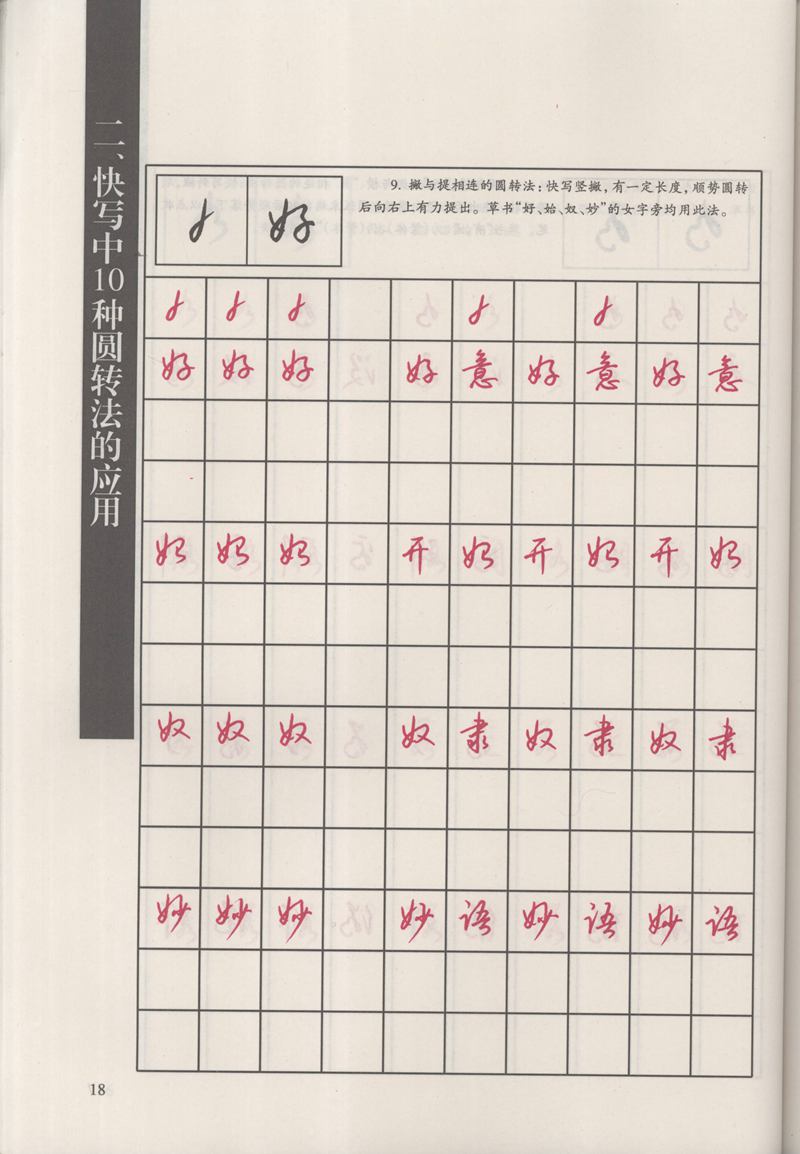 二、快写中10种圆转法的应用
好
9. 撇与提相连的圆转法：快写竖撇，有一定长度，顺势圆转
后向右上有力提出。草书“好、始、奴、妙”的女字旁均用此法。
好 好 好 好 意 好 意 好 意
始 始 始 开 始 开 始 开 始
奴 奴 奴 奴 隶 奴 隶 奴 隶
妙 妙 妙 妙 语 妙 语 妙 语
18